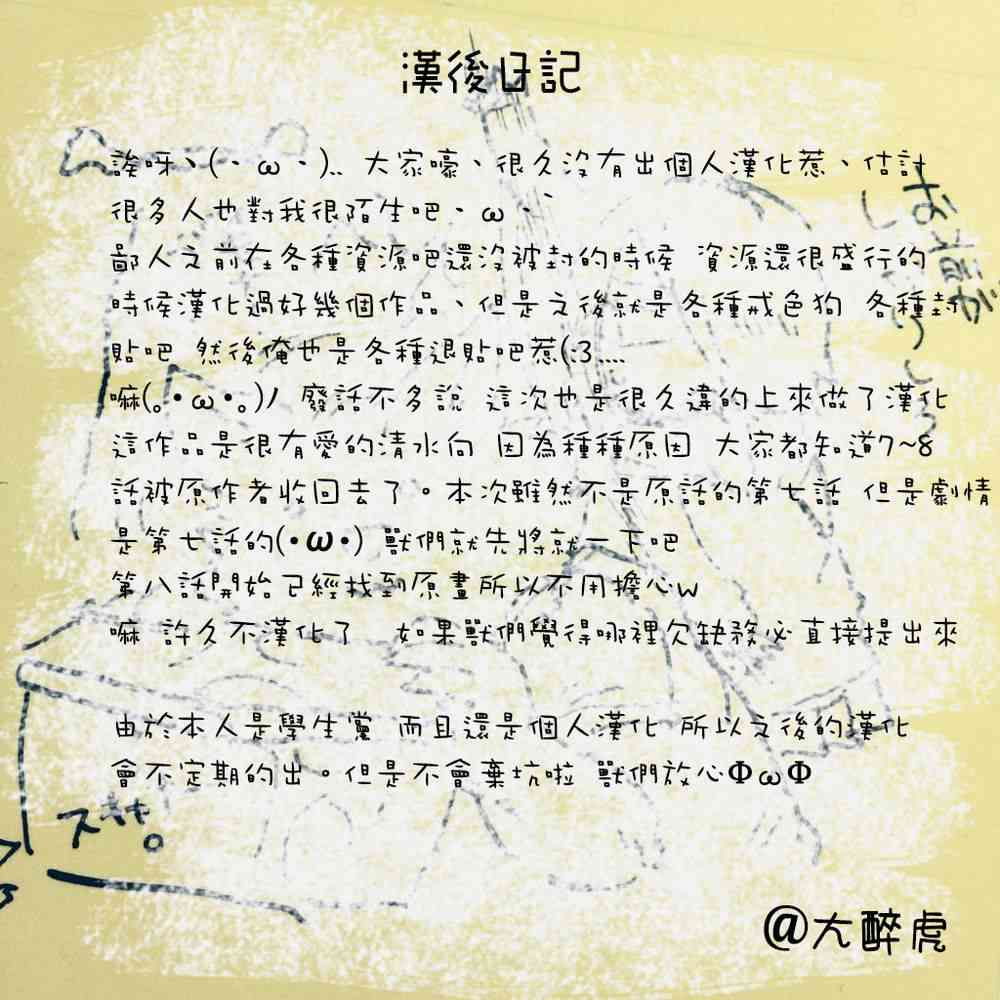 漢後日記
誒呀、(、ω、).. 大家嚎、很久沒有出個人漢化惹、估計
很多人也對我很陌生吧、ω、`
鄙人之前在各種資源吧還沒被封的時候 資源還很盛行的
時候漢化過好幾個作品、但是之後就是各種戒色狗 各種封
貼吧 然後俺也是各種退貼吧惹(:3....
嘛(。•ω•。)ﾉ 廢話不多說 這次也是很久違的上來做了漢化
這作品是很有愛的清水向 因為種種原因 大家都知道7~8
話被原作者收回去了。本次雖然不是原話的第七話 但是劇情
是第七話的(•ω•) 獸們就先將就一下吧
第八話開始已經找到原畫所以不用擔心w
嘛 許久不漢化了 如果獸們覺得哪裡欠缺務必直接提出來
由於本人是學生黨 而且還是個人漢化 所以之後的漢化
會不定期的出。但是不會棄坑啦 獸們放心ΦωΦ
@大醉虎